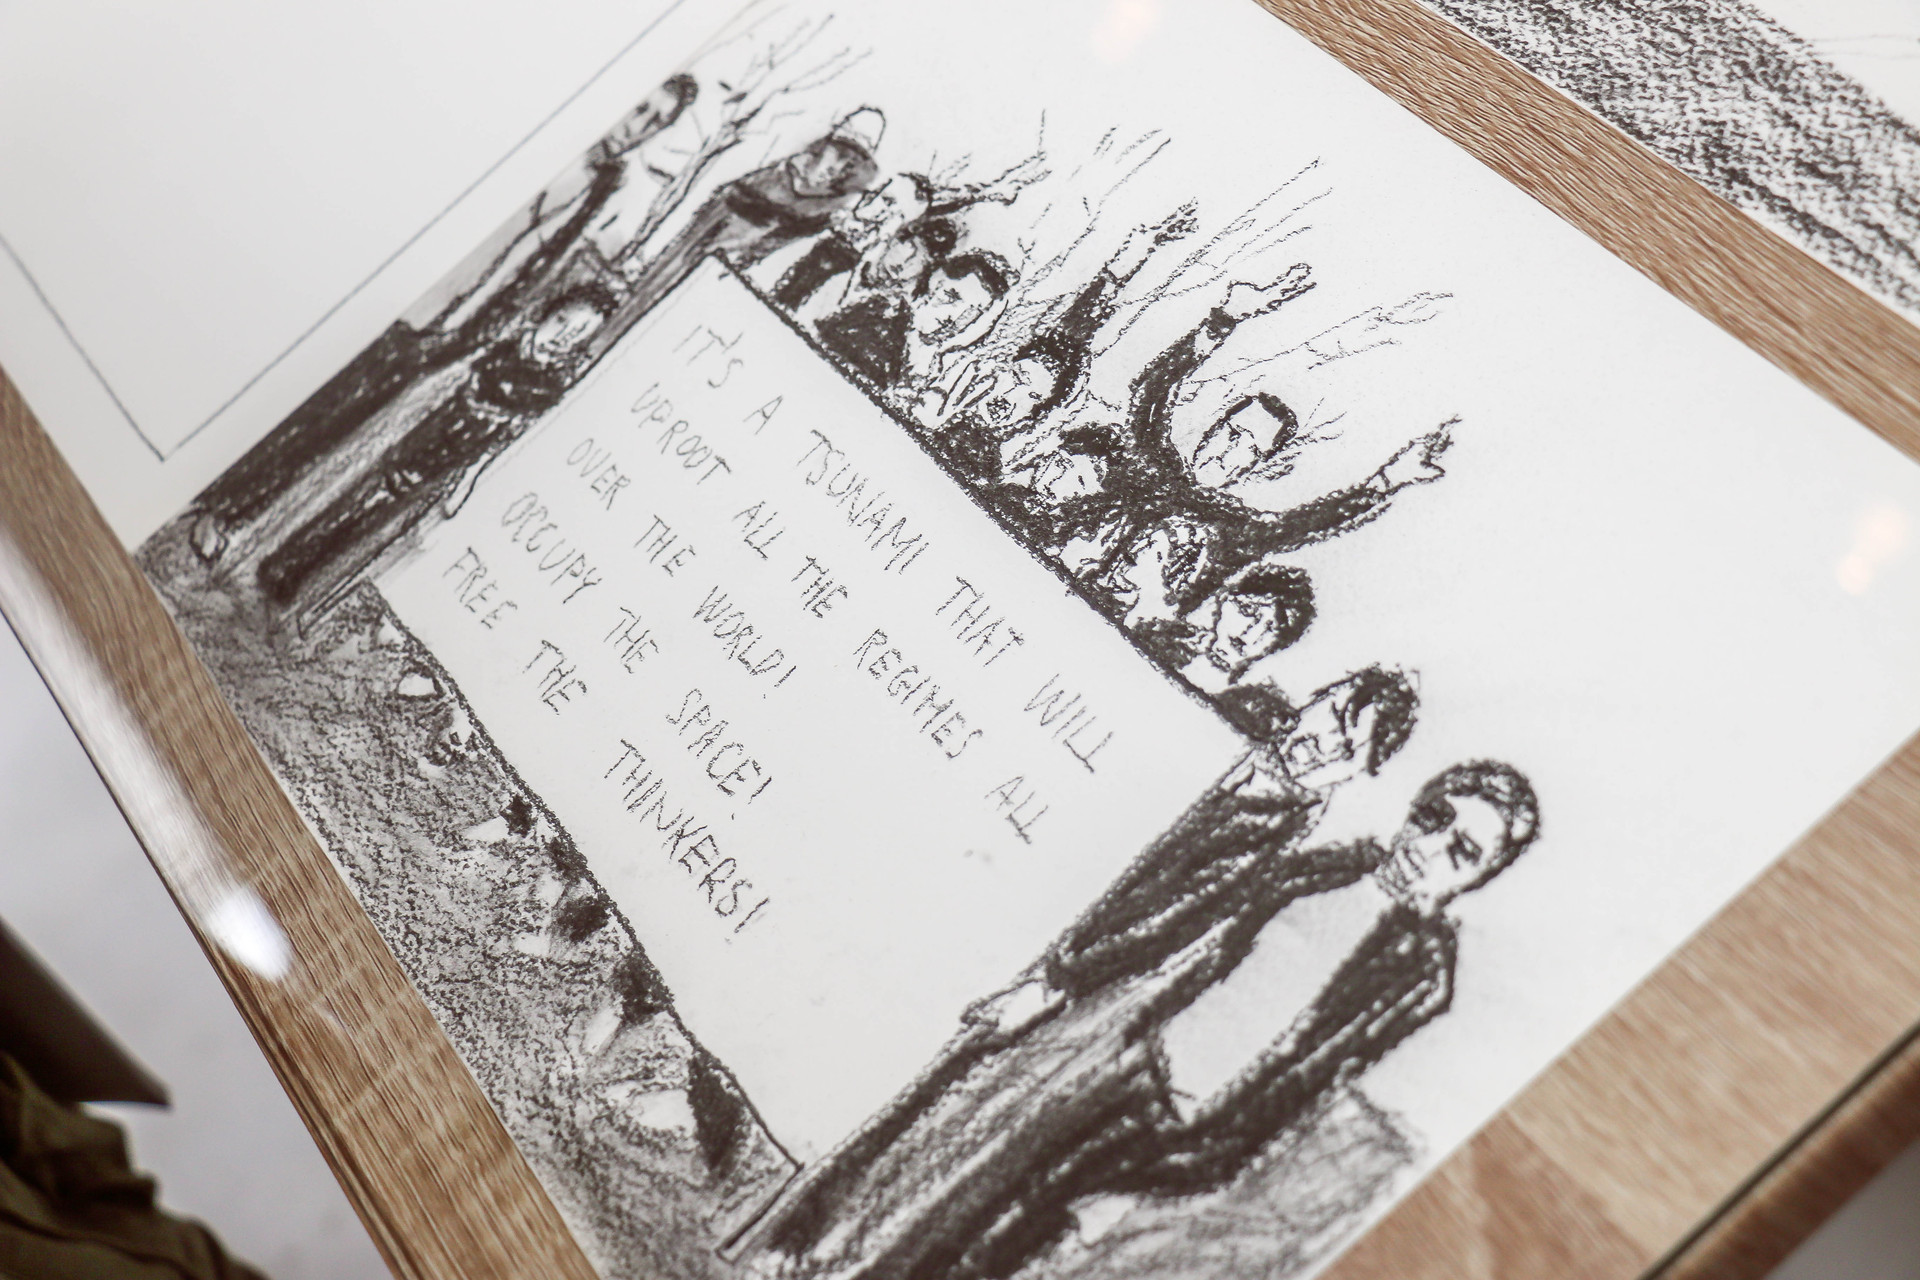 IT'S A TSUNAMI THAT WILL
UPROOT ALL THE REGIMES ALL
OVER THE WORLD!
OCCUPY THE SPACE!
FREE THE THINKERS!